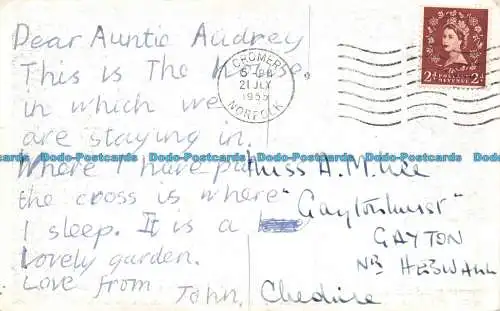 Dear Auntie Audrey
This is The house
in which we
are staying in.
Where I have put
the cross is where
I sleep. It is a
Lovely garden.
Love from
John.
CROMER
21 JLY
1955
NORFOLK
2d POSTAGE REVENUE 2d
Miss A. M.
"Gaytonhurst"
GAYTON
NR HESWALL
Cheshire
Dodo-Postcards Dodo-Postcards Dodo-Postcards Dodo-Postcards Dodo-Postcards